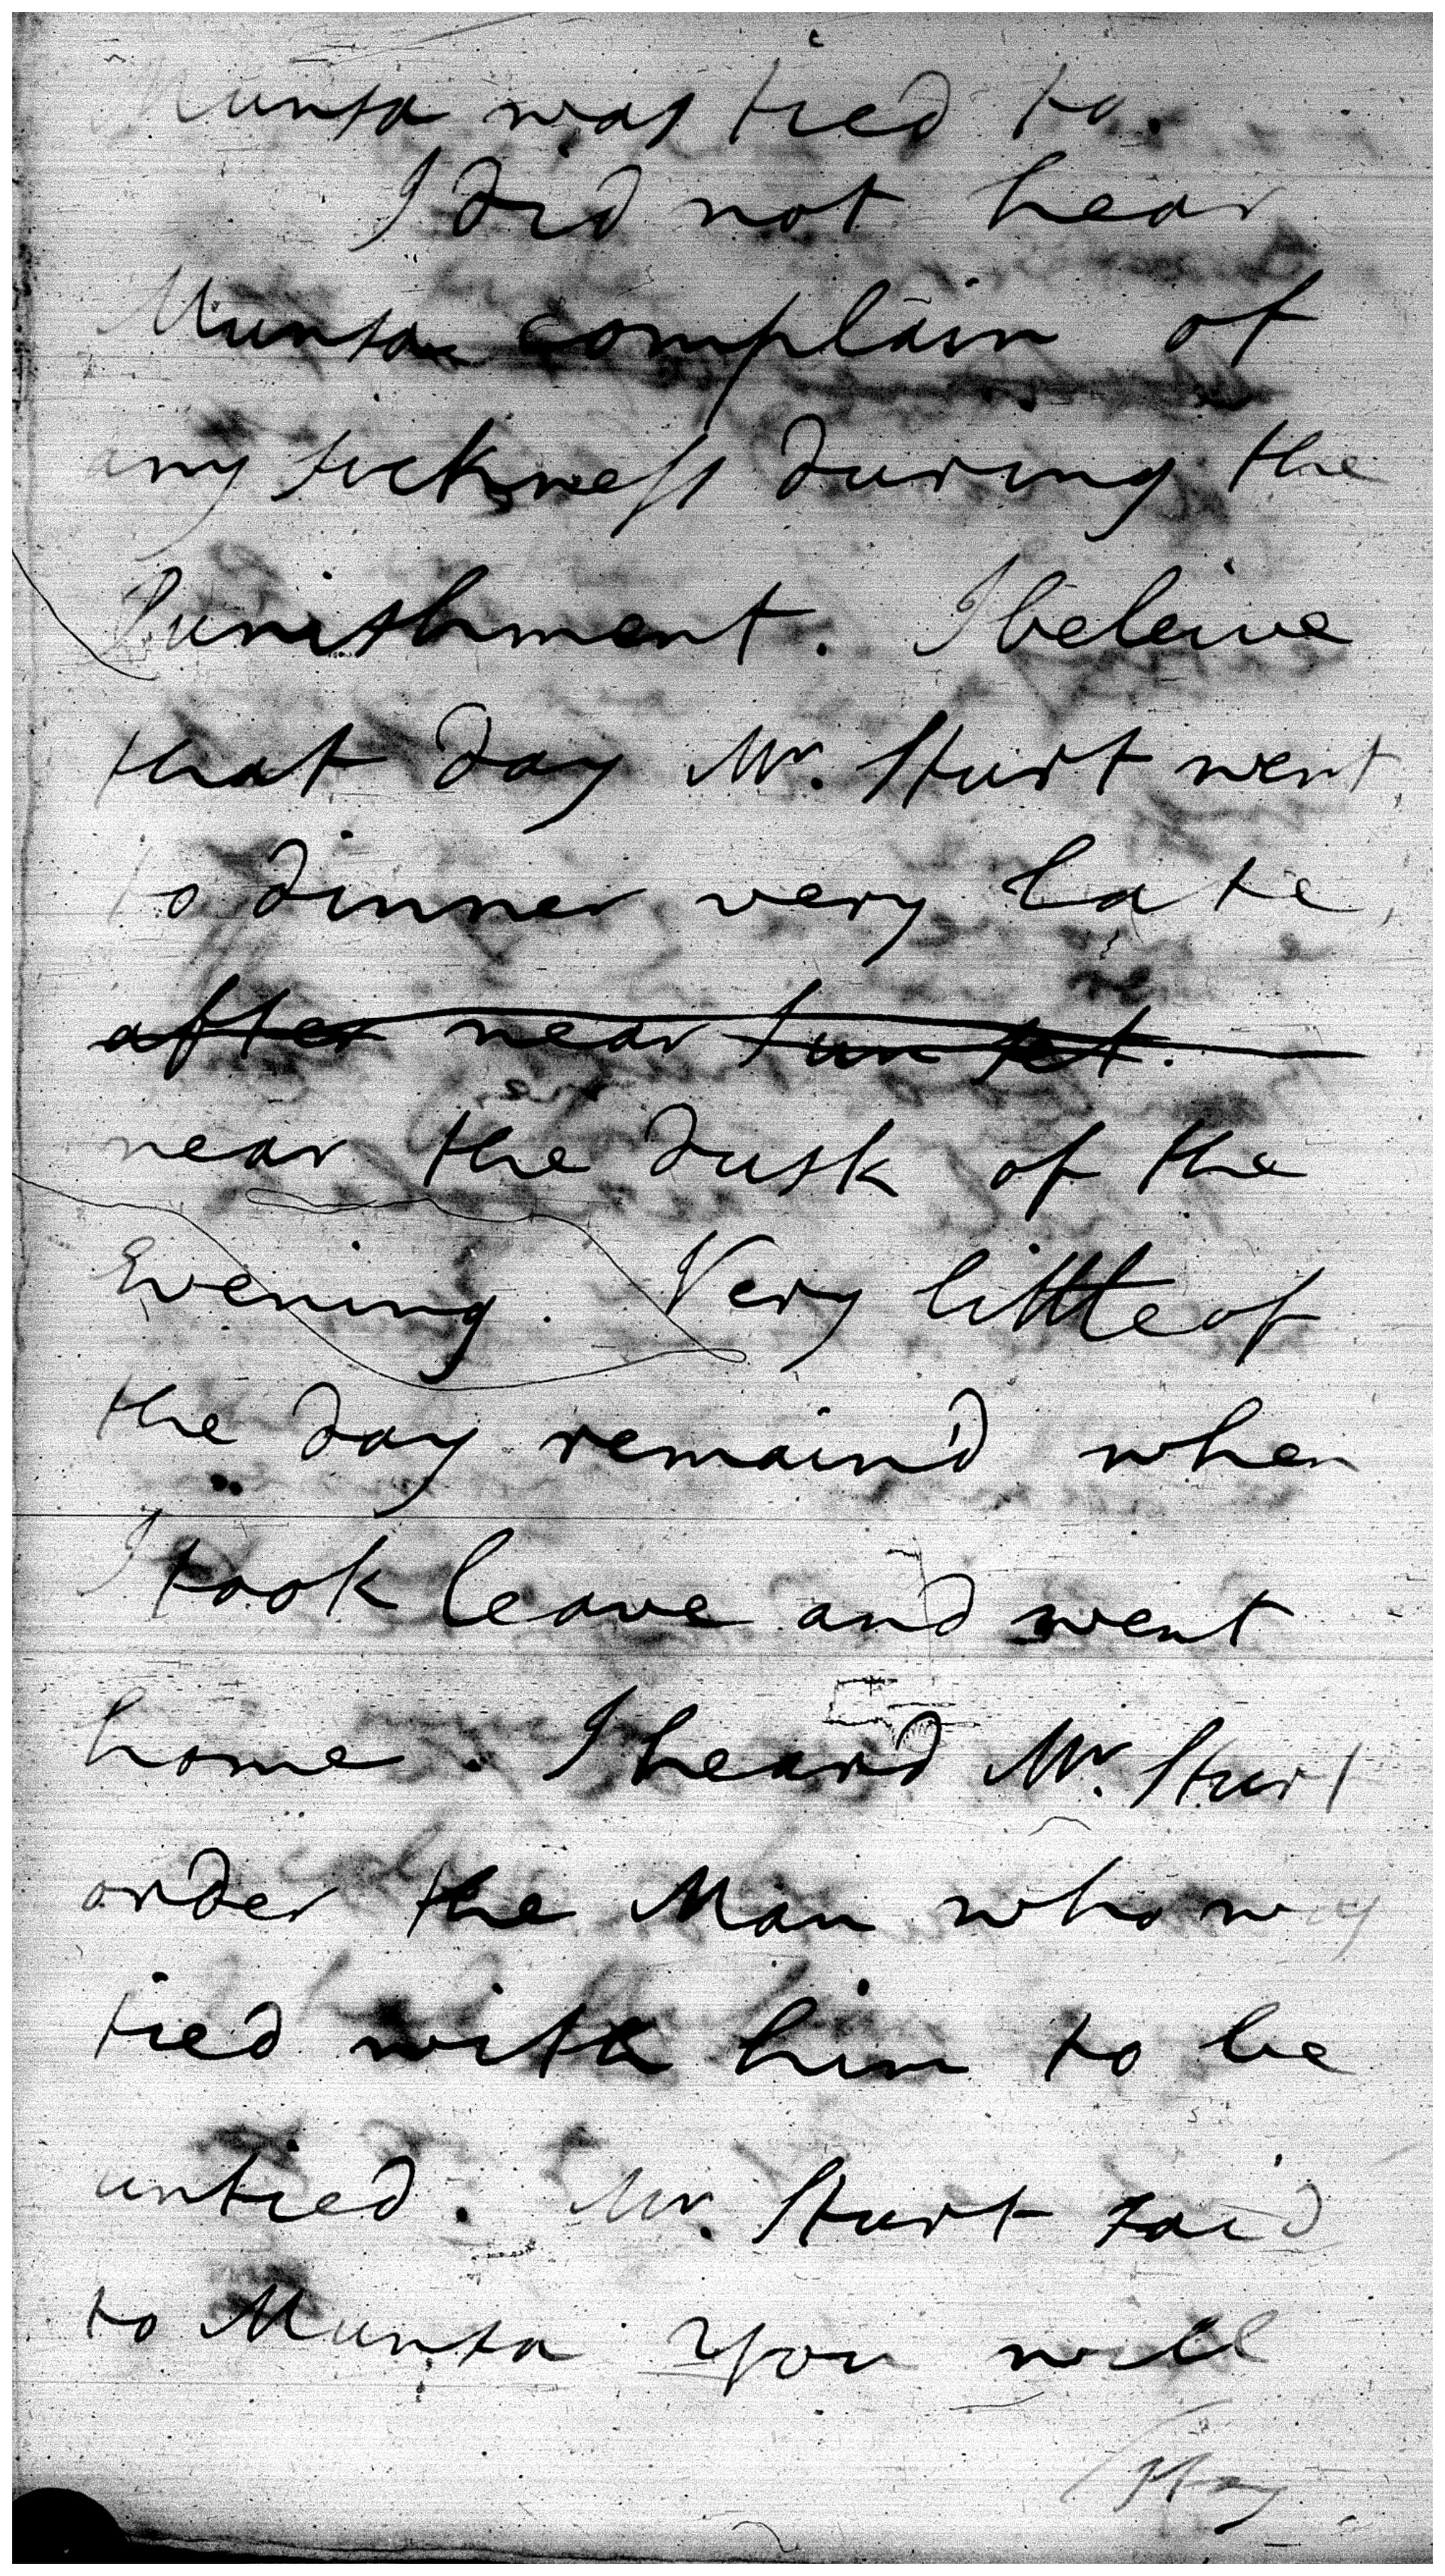 Munsa was tied to.
I did not hear
Munsa complain of
any sickness during the
Punishment. I beleive
that day Mr. Sturt went
to dinner very late,
after near sun set.
near the dusk of the
Evening. Very little of
the day remain'd when
I took leave and went
home. I heard Mr. Sturt
order the Man who was
tied with him to be
untied. Mr. Sturt said
to Munsa You will
Stay